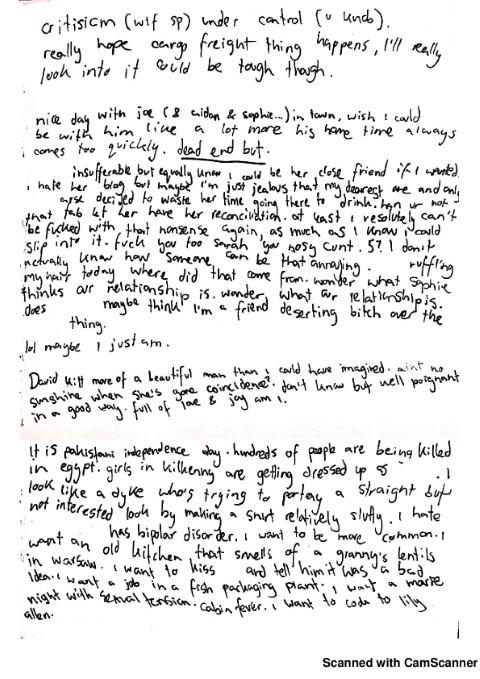 critisicm (wtf sp) under control (u kndo).
really hope cargo freight thing happens, I'll really
look into it could be tough though.
nice day with joe (& aidan & sophie...) in town, wish I could
be with him like a lot more his home time always
comes too quickly. dead end but.
insufferable but equally know I could be her close friend if I wanted.
I hate her blog but maybe I'm just jealous that my dearest one and only
arse decided to waste her time going there to drink. han ur not
that fab let her have her reconciliation. at least I resolutely can't
be fucked with that nonsense again, as much as I know I could
slip into it. fuck you too sarah you nosy cunt. 5? I don't
actually know how someone can be that annoying. ruffling
my hair today where did that come from. wonder what sophie
thinks our relationship is. wonder what our relationship is.
does maybe think I'm a friend deserting bitch over the
thing.
lol maybe I just am.
David Kitt more of a beautiful man than I could have imagined. aint no
sunshine when she's gone coincidence. don't know but well poignant
in a good way. full of love & joy am I.
It is pakistani independence day. hundreds of people are being killed
in egypt. girls in kilkenny are getting dressed up as . I
look like a dyke who's trying to portay a straight but
not interested look by making a shirt relatively slutty. I hate
has bipolar disorder. I want to be more common. I
want an old kitchen that smells of a granny's lentils
in warsaw. I want to kiss and tell him it was a bad
idea. I want a job in a fish packaging plant. I want a movie
night with sexual tension. cabin fever. I want to code to lily
allen.
Scanned with CamScanner